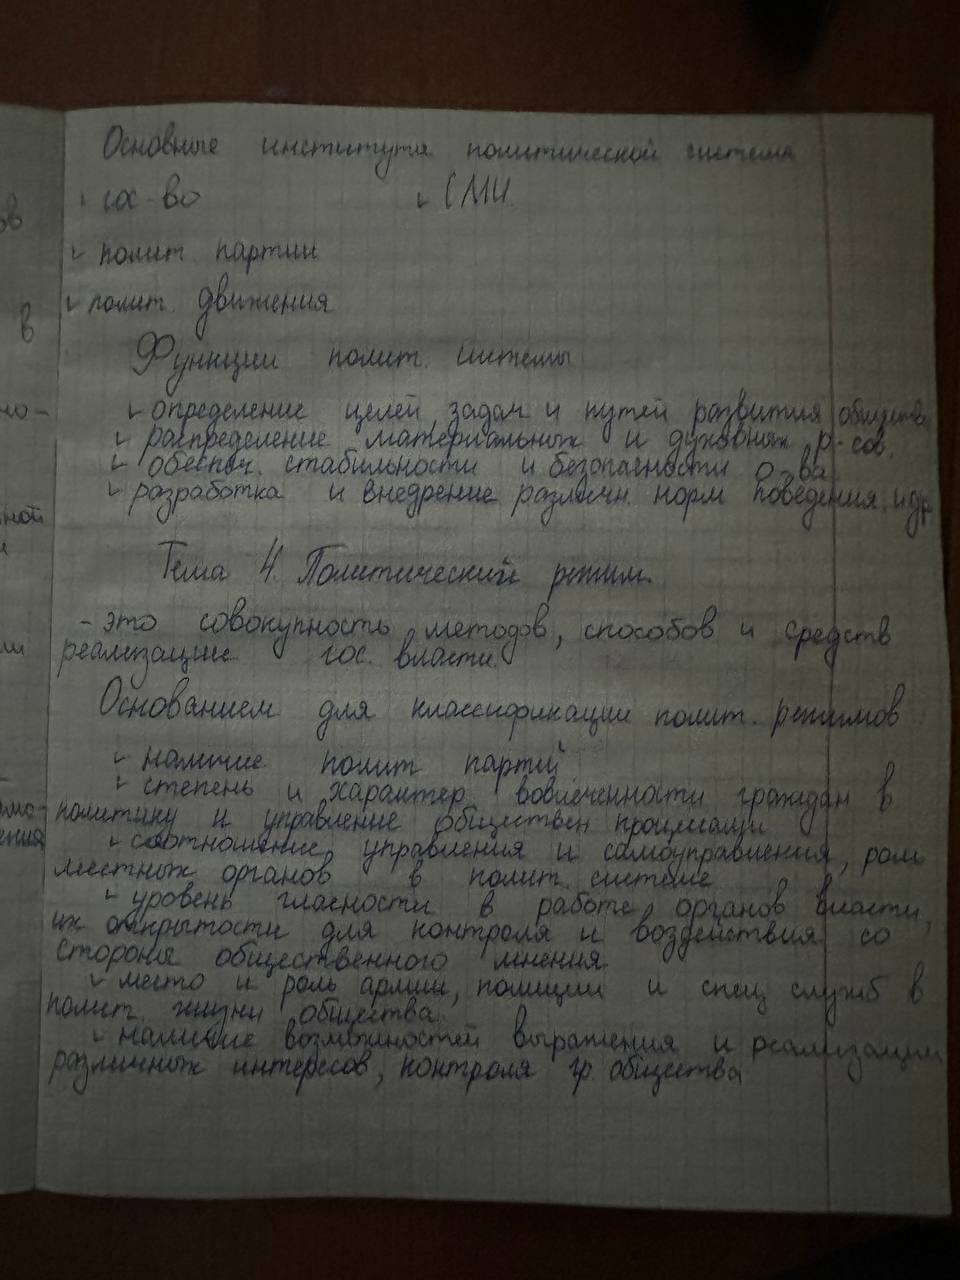 Основные институты политической системы
гос-во
СМИ.
полит. партии
полит. движения
Функции полит. системы
определение целей задач и путей развития обществ
распределение материальных и духовных р-сов.
обеспеч. стабильности и безопасности о-ва
разработка и внедрение различн. норм поведения и др
Тема 4. Политический режим.
- это совокупность методов, способов и средств
реализации гос. власти.
Основанием для классификации полит. режимов
наличие полит партий
степень и характер вовлеченности граждан в
политику и управление обществен процессами
соотношение управления и самоуправления, роль
местных органов в полит. системе
уровень гласности в работе органов власти,
их открытости для контроля и воздействия со
стороны общественного мнения.
место и роль армии, полиции и спец служб в
полит. жизни общества.
наличие возможностей выражения и реализации
различных интересов, контроля гр. общества
ов
в
но-
ной
и
ли
имо-
ения